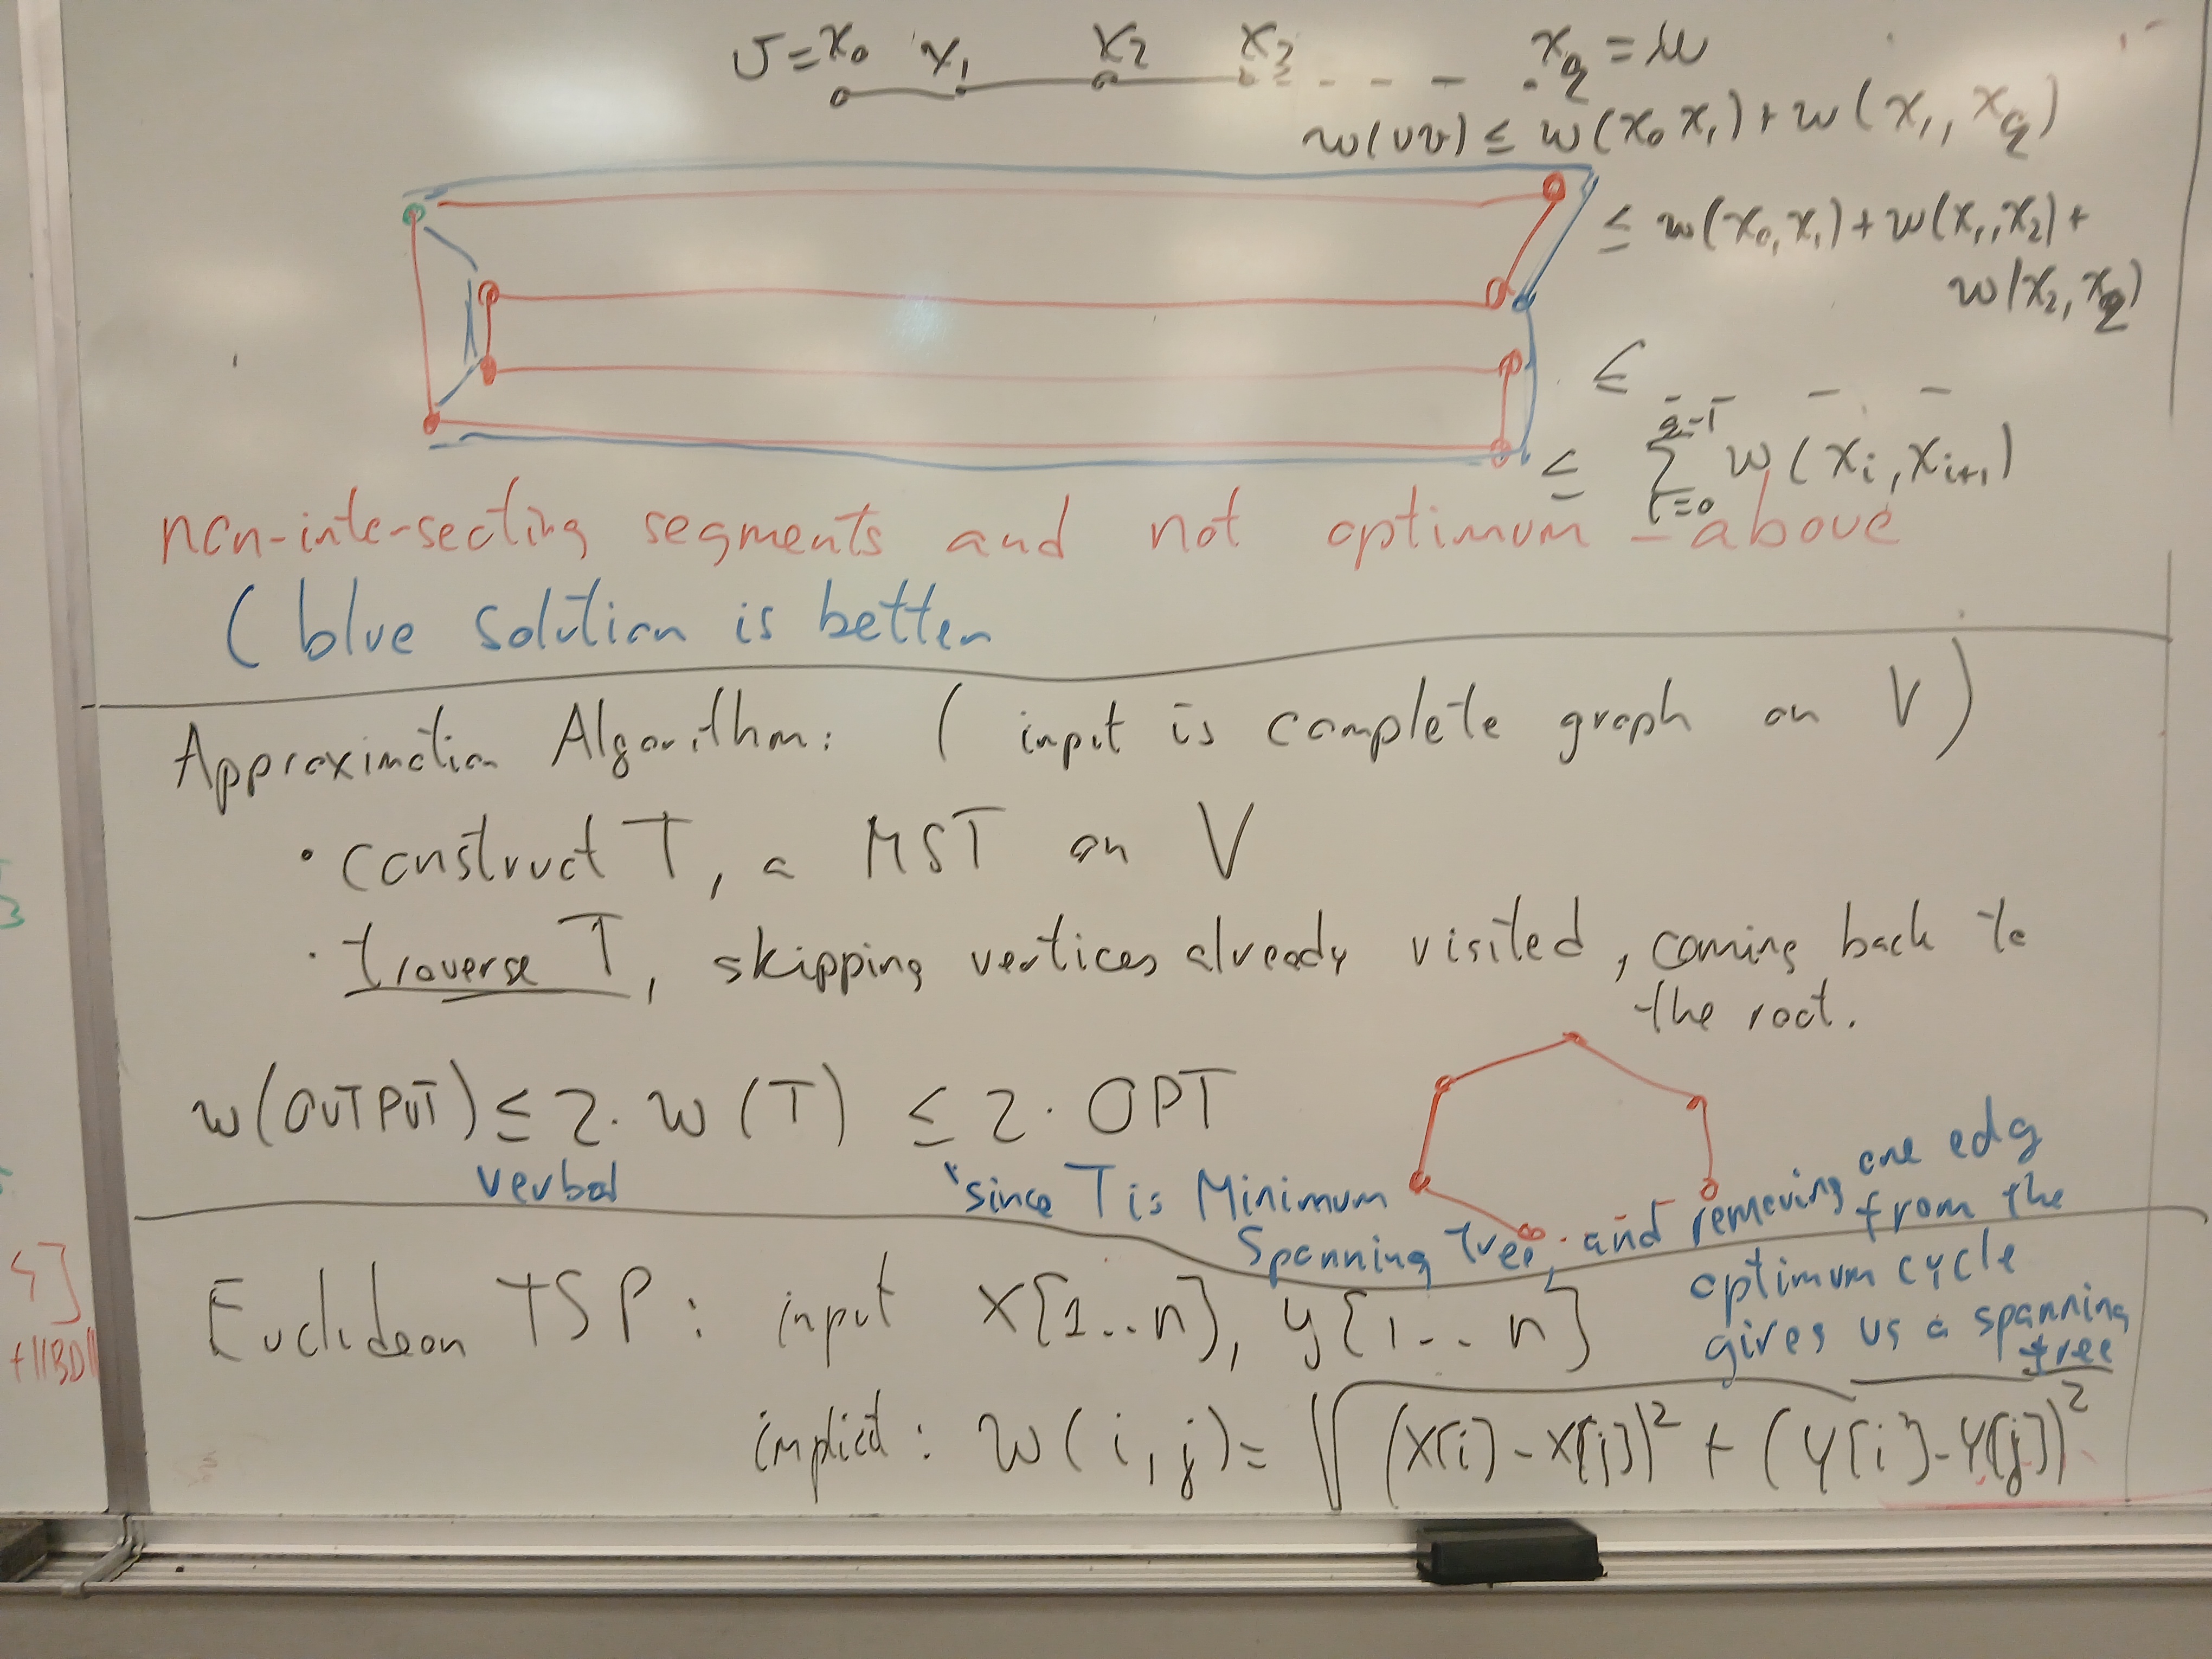 v = x₀ x₁ x₂ x₃ - - - . x_q = u
w(uv) ≤ w(x₀ x₁) + w(x₁, x_q)
≤ w(x₀, x₁) + w(x₁, x₂) +
w(x₂, x_q)
≤ - - -
≤ ∑_{i=0}^{q-1} w(x_i, x_{i+1})
non-intersecting segments and not optimum - above
( blue solution is better
Approximation Algorithm: ( input is complete graph on V )
• construct T, a MST on V
• traverse T, skipping vertices already visited, coming back to
the root.
w(OUTPUT) ≤ 2 · w(T) ≤ 2 · OPT
verbal
since T is Minimum
Spanning Tree, and removing one edg
from the
optimum cycle
gives us a spanning
tree
Euclidean TSP : input X[1..n], Y[1..n]
implicit : w(i,j) = √(X[i] - X[j])² + (Y[i] - Y[j])²
+||BD||